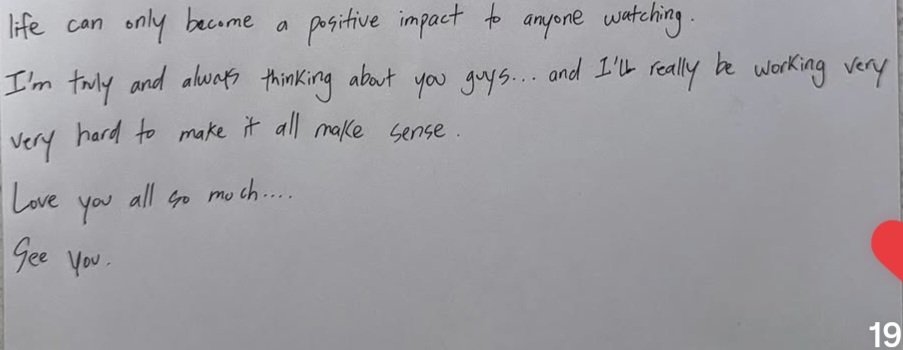 life can only become a positive impact to anyone watching.
I'm truly and always thinking about you guys... and I'll really be working very
very hard to make it all make sense.
Love you all so much....
See you.
19